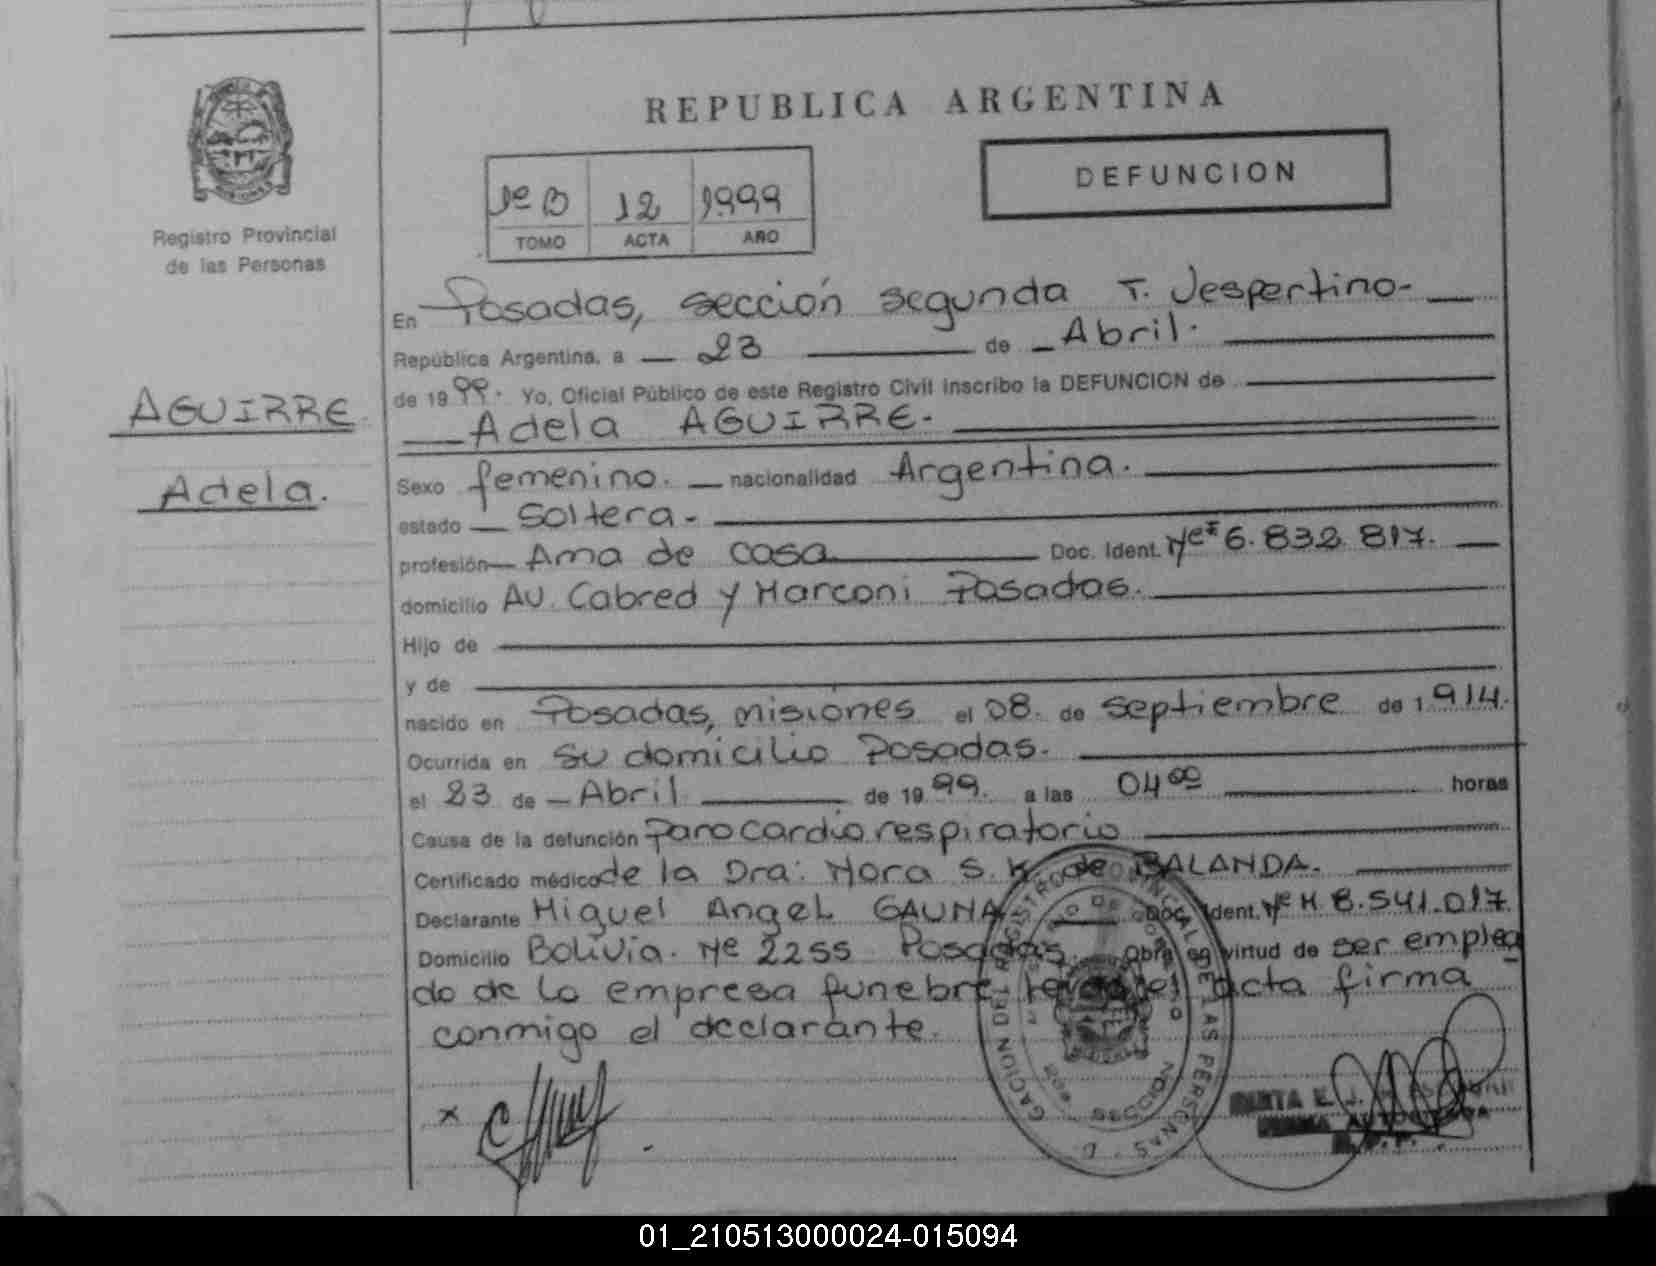 REPUBLICA ARGENTINA
DEFUNCION
1º B 12 1999
TOMO ACTA AÑO
Registro Provincial
de las Personas
AGUIRRE.
Adela.
En Posadas, sección segunda T. Vespertino.
República Argentina, a 23 de Abril.
de 1999. Yo, Oficial Público de este Registro Civil inscribo la DEFUNCION de
Adela AGUIRRE.
Sexo femenino. nacionalidad Argentina.
estado Soltera.
profesión Ama de casa Doc. Ident. Nº F 6.832.817.
domicilio Av. Cabred y Marconi Posadas.
Hijo de
y de
nacido en Posadas, misiones el 08. de septiembre de 1.914.
Ocurrida en su domicilio Posadas.
el 23 de Abril de 1999. a las 04 00 horas
Causa de la defunción Paro cardio respiratorio
Certificado médico de la Dra: Nora S. K. de BALANDA.
Declarante Miguel Angel GAUNA Doc. Ident. Nº M 8.541.017
Domicilio Bolivia. Nº 2255 Posadas. Obra en virtud de ser emplea
do de la empresa funebre acta firma
conmigo el declarante.
x
01_210513000024-015094